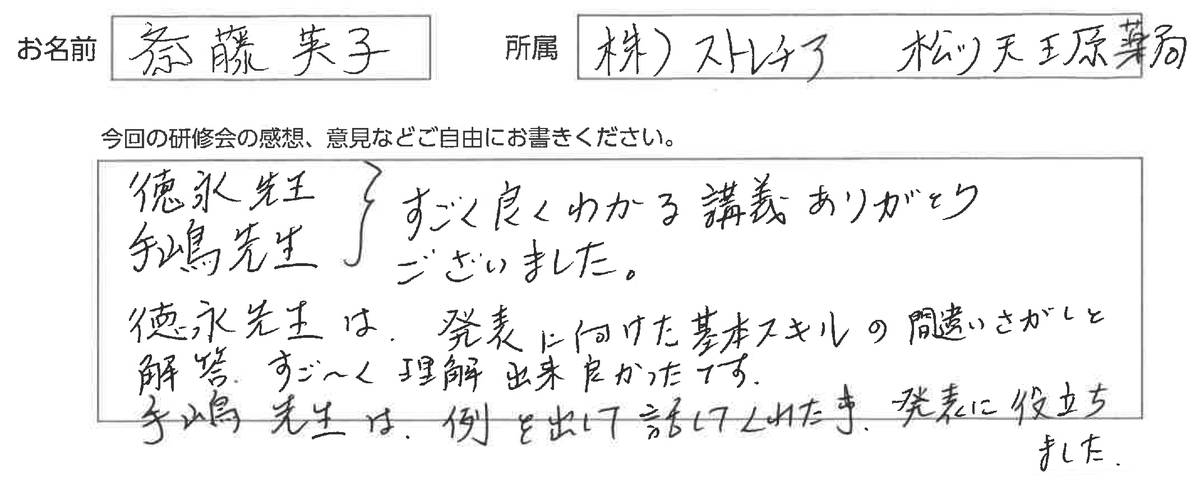 お名前 斎藤英子 所属 株)ストレチア 松ツ天王原薬局
今回の研修会の感想、意見などご自由にお書きください。
徳永先生
手嶋先生
すごく良くわかる講義ありがとう
ございました。
徳永先生は、発表に向けた基本スキルの間違いさがしと
解答、すご〜く理解出来良かったです。
手嶋先生は、例を出して話してくれたき、発表に役立ち
ました。